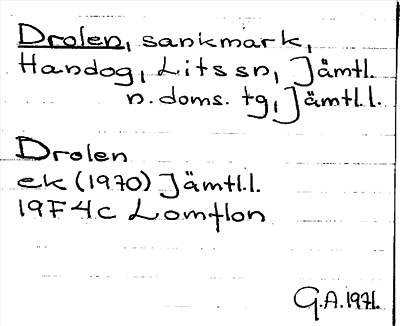 Drolen, sankmark,
Handog, Lits sn, Jämtl.
n. doms. tg, Jämtl.l.
Drolen
ek (1970) Jämtl.l.
19F4c Lomflon
G.A. 1971.